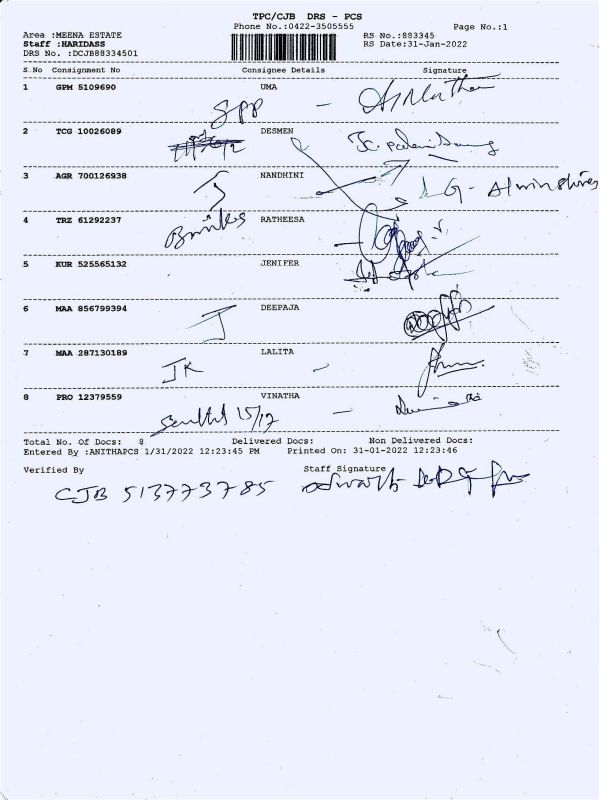 TPC/CJB DRS - PCS
Phone No.:0422-3505555 Page No.:1
Area :MEENA ESTATE RS No.:883345
Staff :HARIDASS RS Date:31-Jan-2022
DRS No. :DCJB88334501
S.No Consignment No Consignee Details Signature
1 GPM 5109690 UMA
2 TCG 10026089 DESMEN
3 AGR 700126938 NANDHINI
4 TRZ 61292237 RATHEESA
5 KUR 525565132 JENIFER
6 MAA 856799394 DEEPAJA
J
7 MAA 287130189 LALITA
JK
8 PRO 12379559 VINATHA
15/17
Total No. Of Docs: 8 Delivered Docs: Non Delivered Docs:
Entered By :ANITHAPCS 1/31/2022 12:23:45 PM Printed On: 31-01-2022 12:23:46
Verified By Staff Signature
CJB 513773785